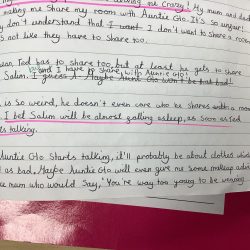 making me share my room with Auntie Glo. It's so unfair!
don't understand that I want I don't want to share a room
not like they have to share too.
Ted has to share too, but at least he gets to share
Salim. I guess A Maybe Auntie Glo won't be that bad!
and I have to share with Auntie Glo!
is so weird, he doesn't even care who he shares with a room
I bet Salim will be almost falling asleep, as soon as Ted
talking.
Auntie Glo starts talking, it'll probably be about clothes which
as bad. Maybe Auntie Glo will even give me some makeup
mum who would say, 'You're way too young to be wearing